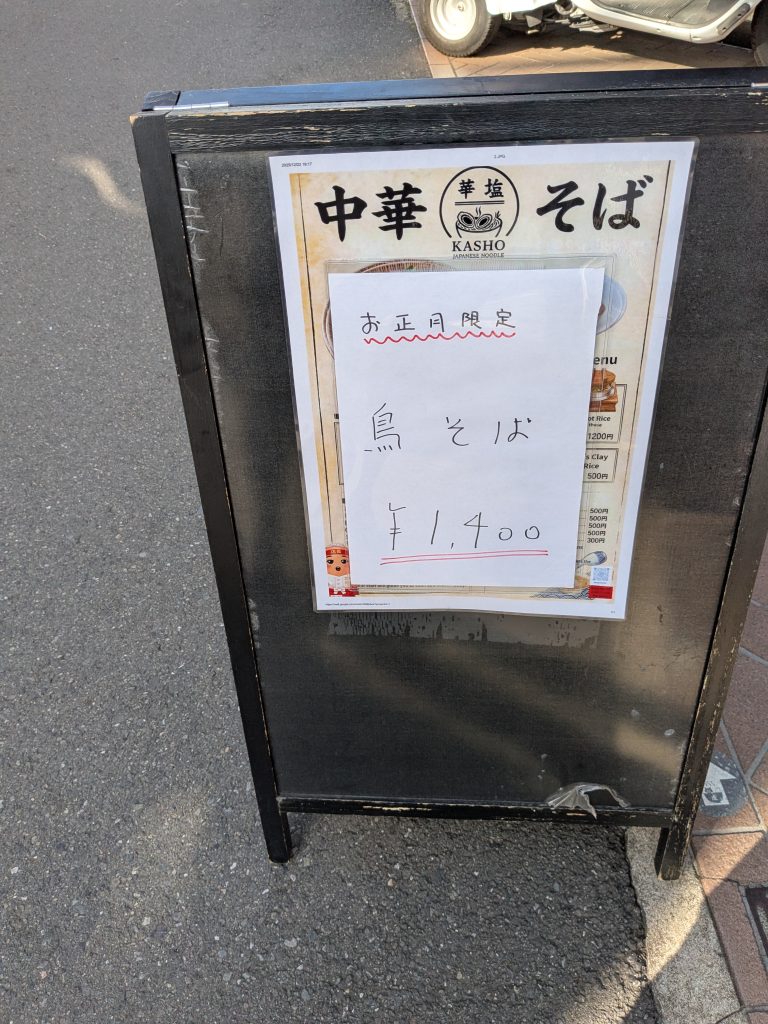 中華 華塩 そば
KASHO
JAPANESE NOODLE
お正月限定
鳥 そば
¥1,400
enu
ot Rice
1200円
s Clay
Rice
500円
500円
500円
500円
500円
300円